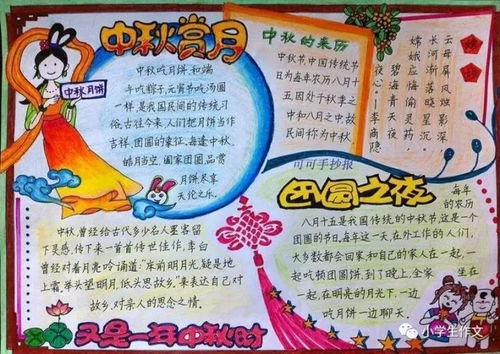 中秋赏月
中秋月饼
中秋吃月饼,和端
午吃粽子,元宵节吃汤圆
一样,是我国民间的传统习
俗,古往今来,人们把月饼当作
吉祥、团圆的象征,每逢中秋,
皓月当空,阖家团圆,品赏
月饼尽享
天伦之乐。
中秋的来历
中秋节中国传统节
日为每年农历八月十
五因处于秋季之
中和八月之中故
民间称为中秋
可可手抄报
嫦娥
云母屏风烛影深
长河渐落晓星沉
嫦娥应悔偷灵药
碧海青天夜
夜心——李商隐
中秋,曾经给古代多少名人墨客留
下灵感,传下来一首首传世佳作,李白
曾经对着月亮吟诵道:“床前明月光,疑是地
上霜,举头望明月,低头思故乡。”来表达自己对
故乡,对亲人的思念之情。
又是一年中秋时
团圆之夜
每年
的农历
八月十五是我国传统的中秋节,这是一个
团圆的节日,每年这一天,在外工作的人们,
大多数都会回家,和自己的家人在一起,一
起吃顿团圆饭,到了晚上,全家
坐在
一起,在明亮的月光下,一边
吃月饼一边聊天。
小学生作文